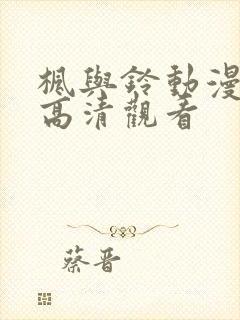 楓與鈴動漫
高清觀看
蔡晋